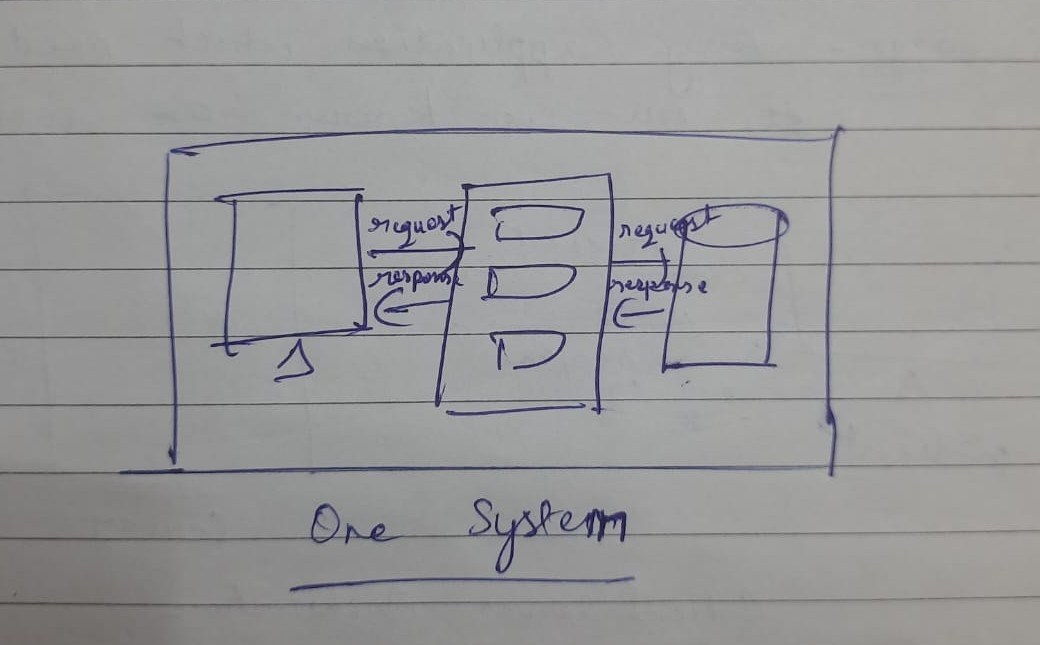 request
response
request
response
One System